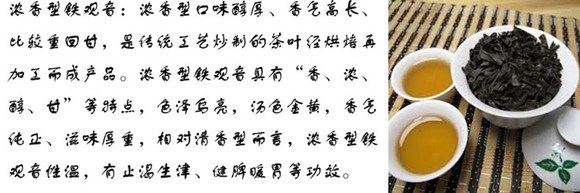 浓香型铁观音：浓香型口味醇厚、香气高长、
比较重回甘，是传统工艺炒制的茶叶经烘焙再
加工而成产品。浓香型铁观音具有“香、浓、
醇、甘”等特点，色泽乌亮，汤色金黄，香气
纯正、滋味厚重，相对清香型而言，浓香型铁
观音性温，有止渴生津、健脾暖胃等功效。